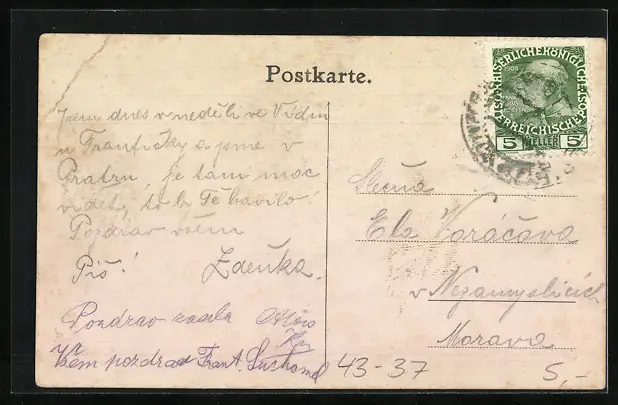 Postkarte.
Jsem dnes v neděli ve Vídni
u Frantičky a jsme v
Pratru, je tam moc
videt, to by Te bavilo!
Pozdrav všem
Piš! Zdeňka.
Pozdrav Alois
Všem pozdrav Frant. Suchomel
KAISERLICHE KÖNIGLICHE
ÖSTERREICHISCHE POST
1908
5 HELLER 5
Slečna
Ela
v Nezamyslicích
Morava
43-37
5,-